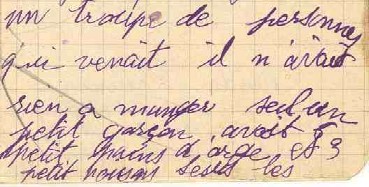 un troupe de personnes
qui venait il n'avait
rien a manger seul un
petit garçon avait 5
petit pains d'orge et 3
petit poisons les